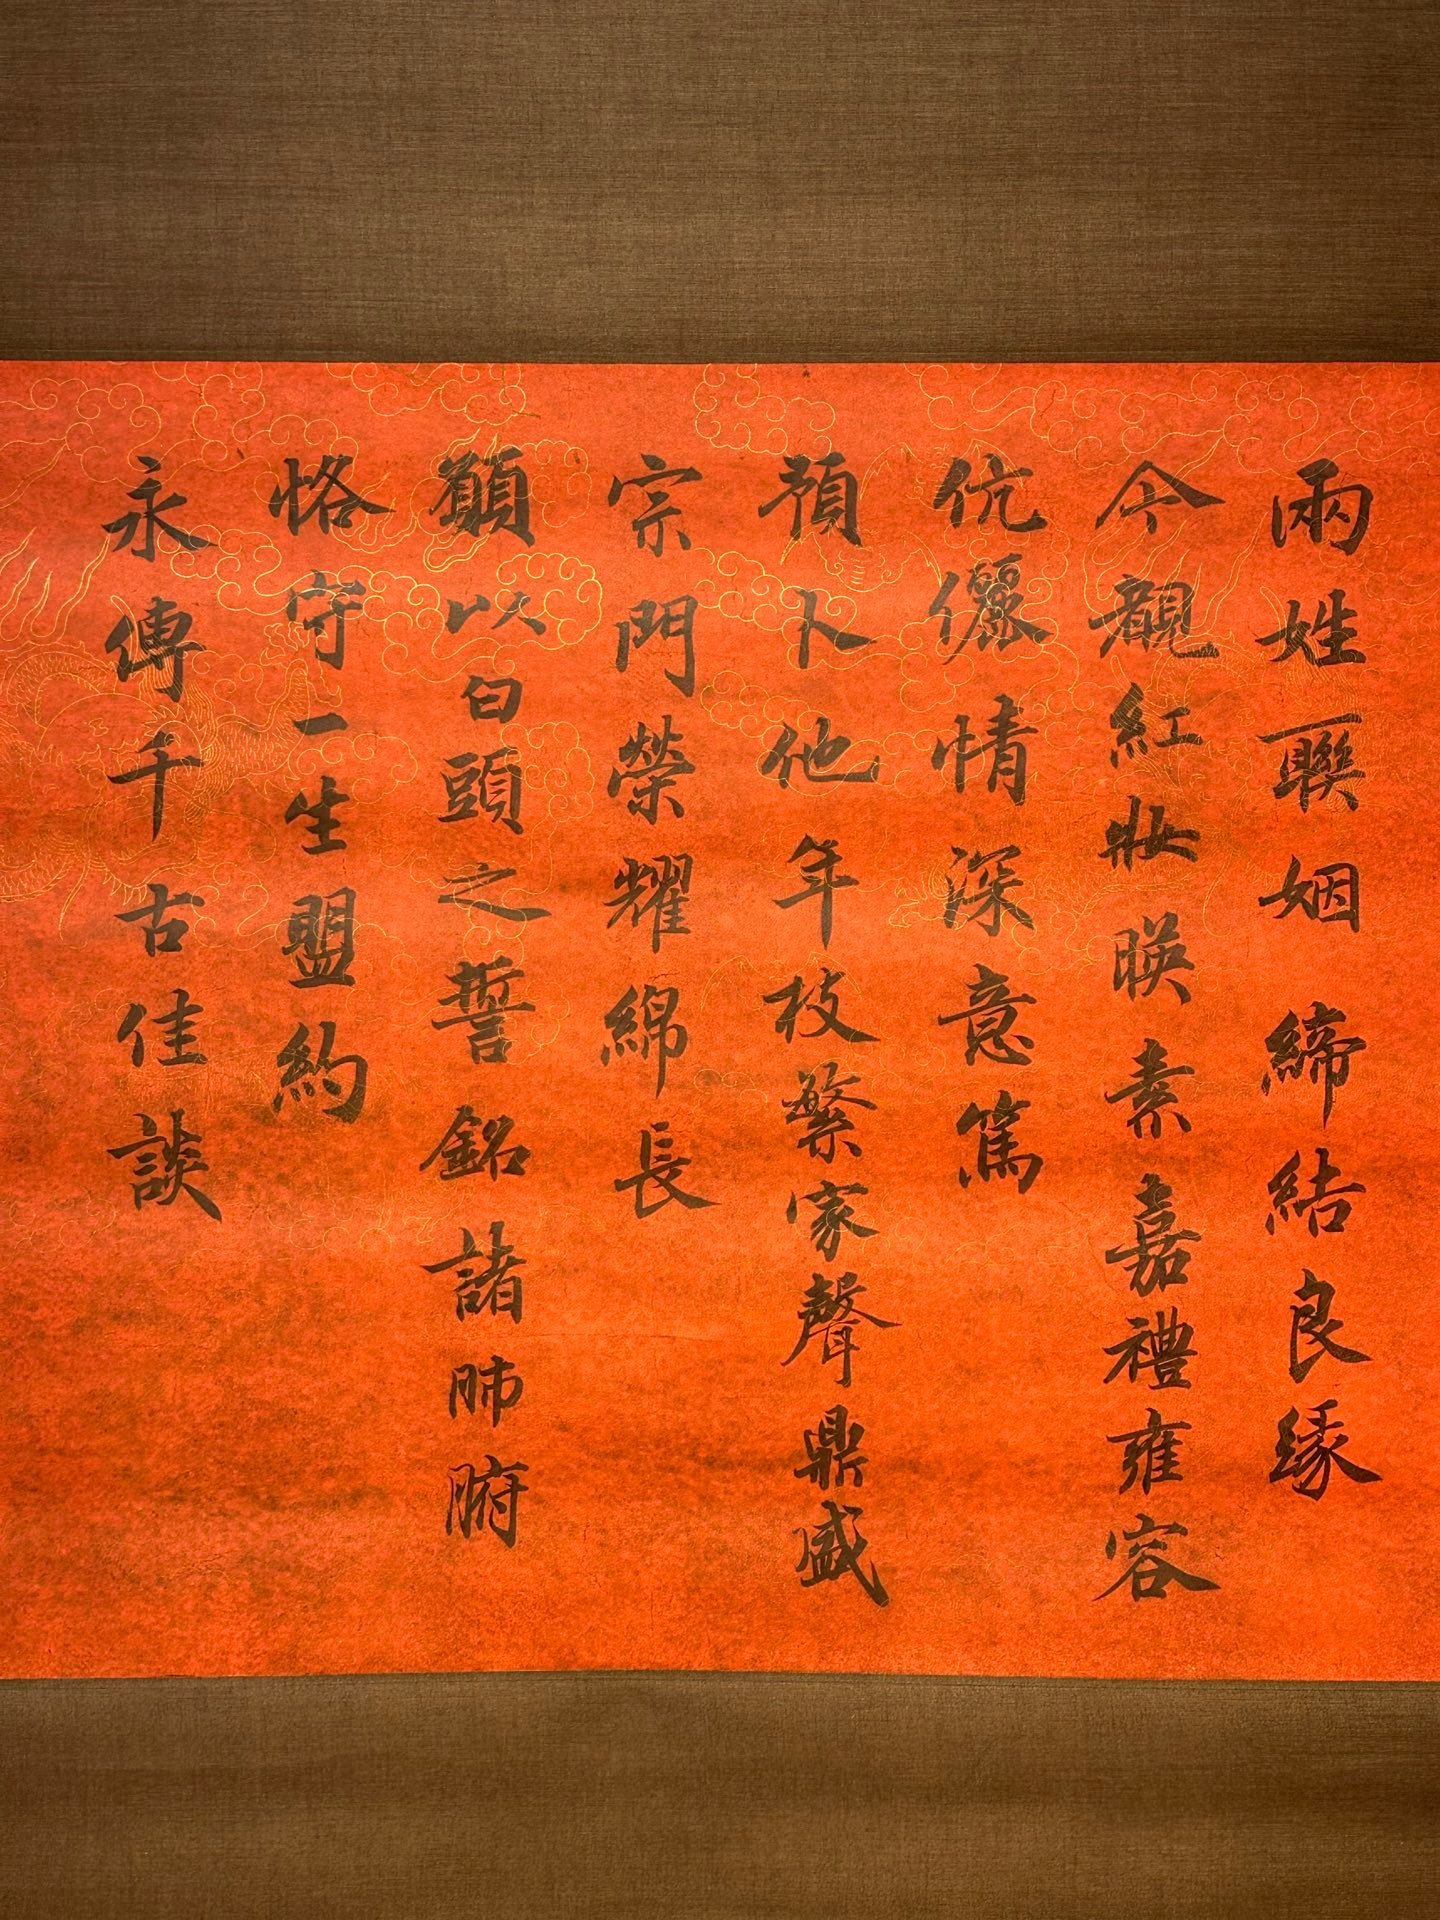 兩姓聯姻締結良緣
今觀紅妝暎素嘉禮雍容
伉儷情深意篤
預卜他年枝繁家聲鼎盛
宗門榮耀綿長
願以白頭之誓銘諸肺腑
恪守一生盟約
永傳千古佳談